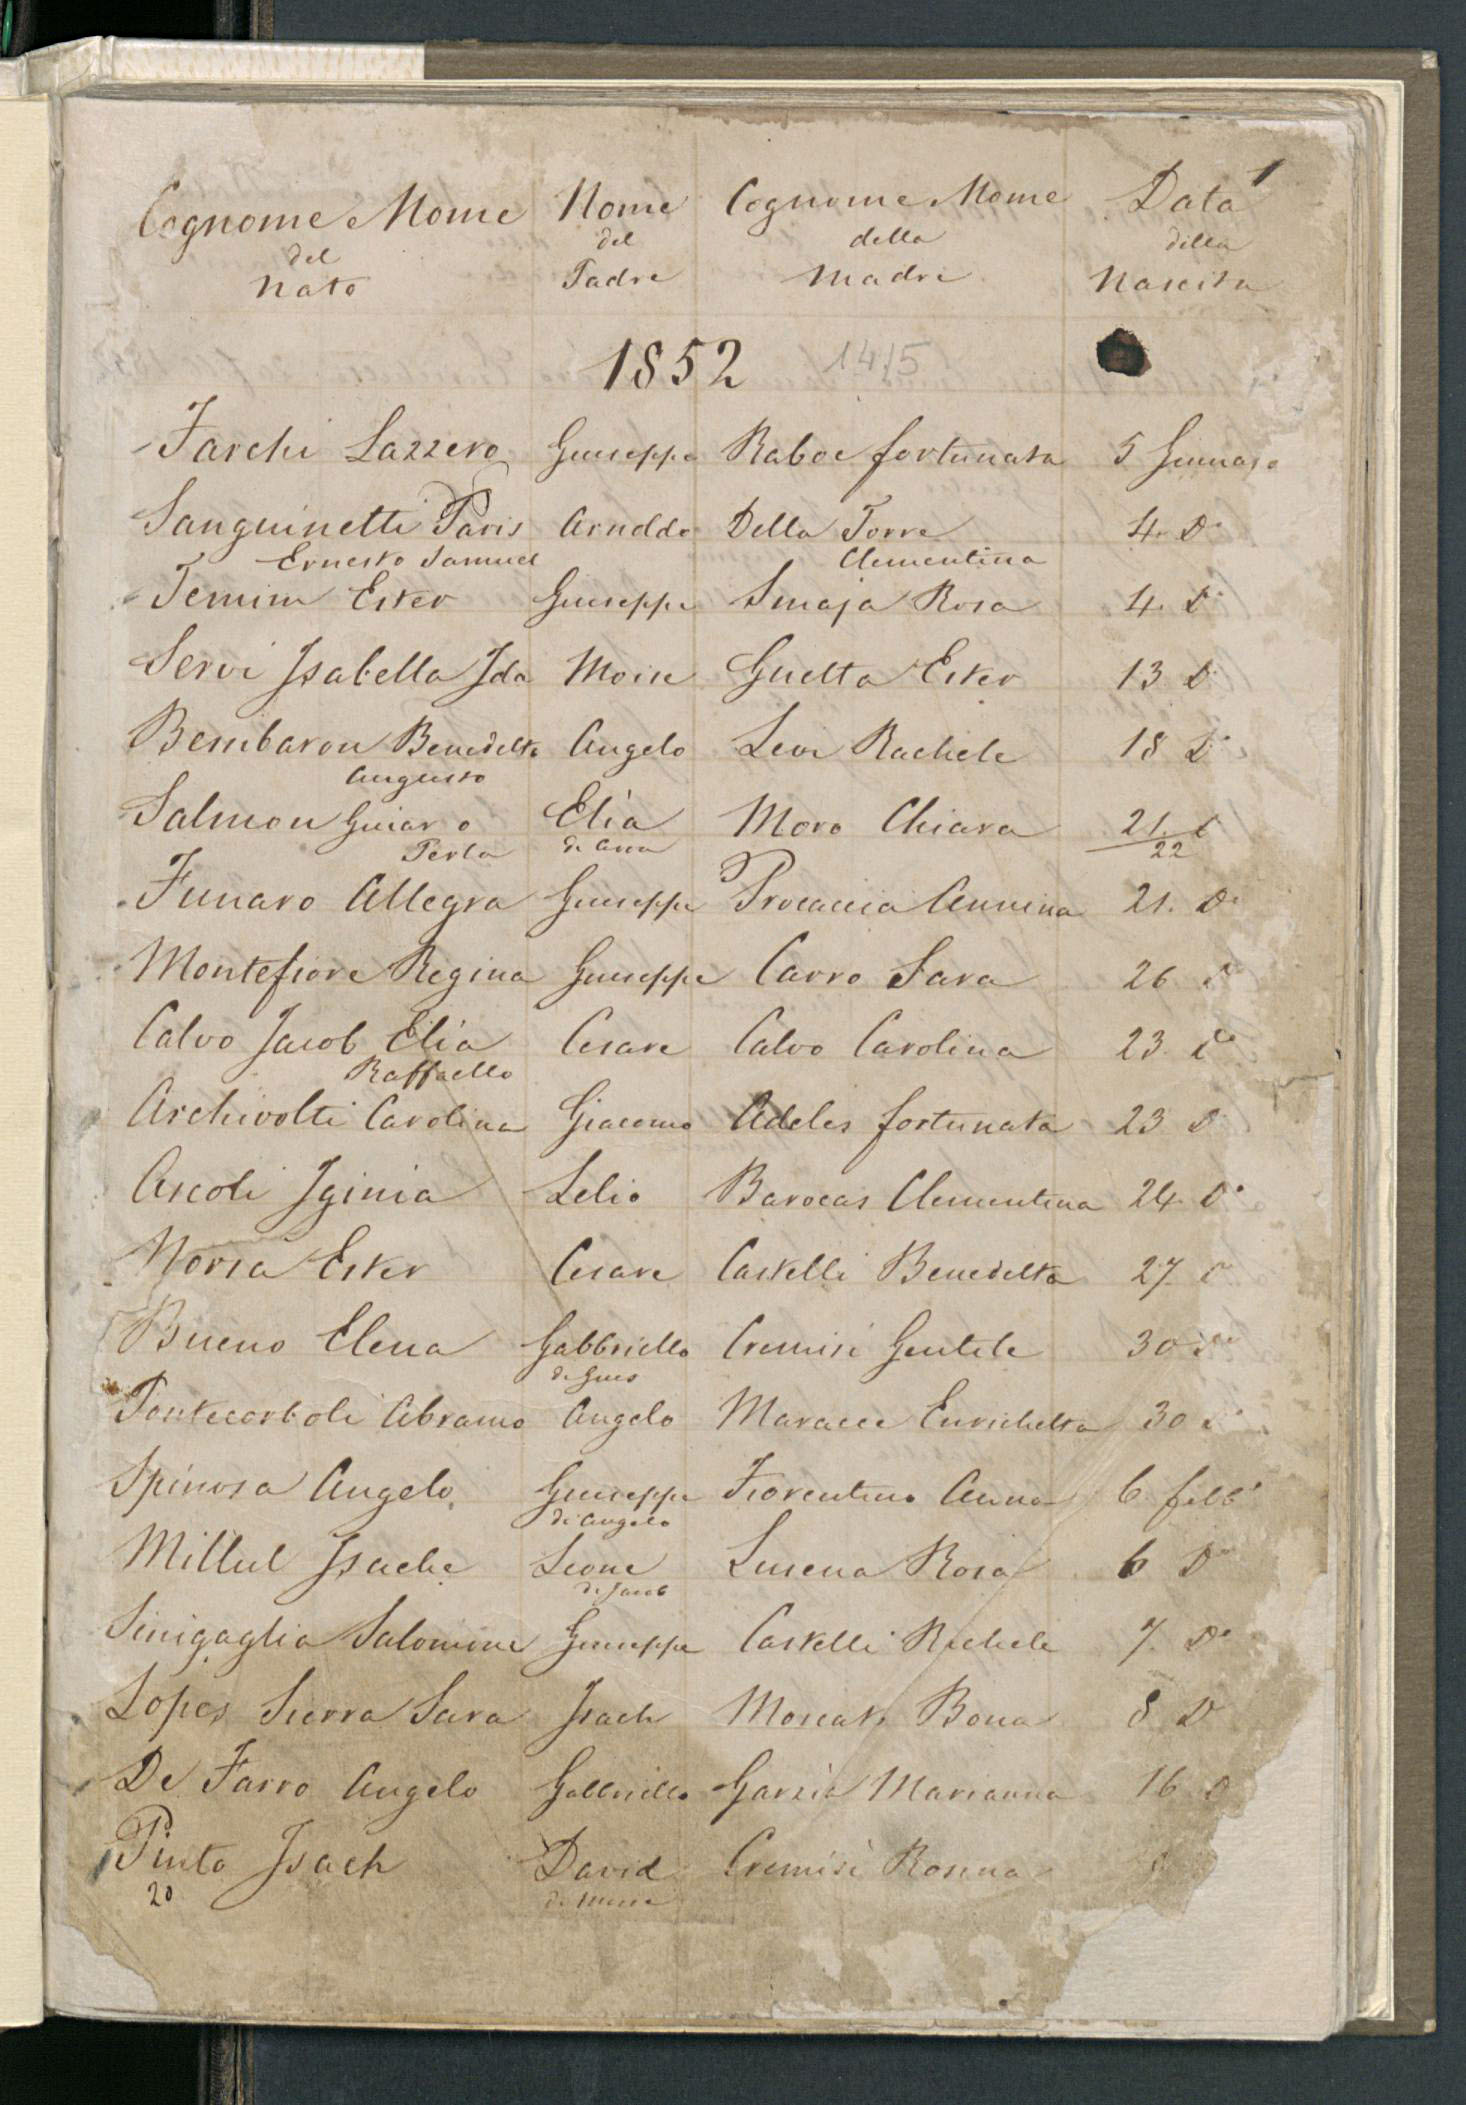 1
Cognome Nome Nome Cognome Nome Data
del del della della
Nato Padre Madre Nascita
1852 1415
Farchi Lazzero Giuseppe Raboe fortunata 5 Gennajo
Sanguinetti Paris Arnoldo Della Torre 4. Do
Ernesto Samuel Clementina
Temim Ester Giuseppe Smaja Rosa 4. Do
Servi Isabella Ida Moise Guetta Ester 13 Do
Bembaron Benedetto Angelo Levi Rachele 18 Do
Augusto
Salmon Elia Moro Chiara 21. Do
Perla di 22
Funaro Allegra Giuseppe Procaccia Annina 21. Do
Montefiore Regina Giuseppe Carro Sara 26 Do
Calvo Jacob Elia Cesare Calvo Carolina 23. Do
Raffaello
Archivolti Carolina Giacomo Adeles fortunata 23 Do
Ascoli Iginia Lelio Barocas Clementina 24. Do
Norsa Ester Cesare Castelli Benedetta 27. Do
Bueno Elena Gabbriello Cremisi Gentile 30 Do
di
Pontecorboli Abramo Angelo Maracci Enrichetta 30 Do
Spinosa Angelo Giuseppe Fiorentino Anna 6 febbo
di Angelo
Millul Isache Leone Lusena Rosa 6 Do
di Jacob
Sinigaglia Salomone Giuseppe Castelli Rachele 7. Do
Lopes Sierra Sara Isach Moscato Bona 8 Do
De Farro Angelo Gabbriello Garzia Marianna 16 Do
Pinto Isach David Cremisi Rosina
20 di Moise